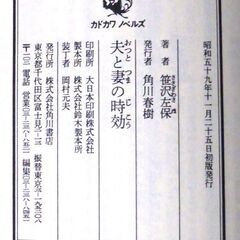 カドカワ ノベルズ
昭和五十九年十一月二十五日初版発行
著者 笹沢左保
ささざわさほ
発行者 角川春樹
夫と妻の時効
おっと つま じこう
印刷所 大日本印刷株式会社
製本所 株式会社鈴木製本所
装丁者 岡村元夫
発行所 株式会社角川書店
東京都千代田区富士見二―十三 振替東京③一九五二〇八
〒一〇二 電話 営業
編集